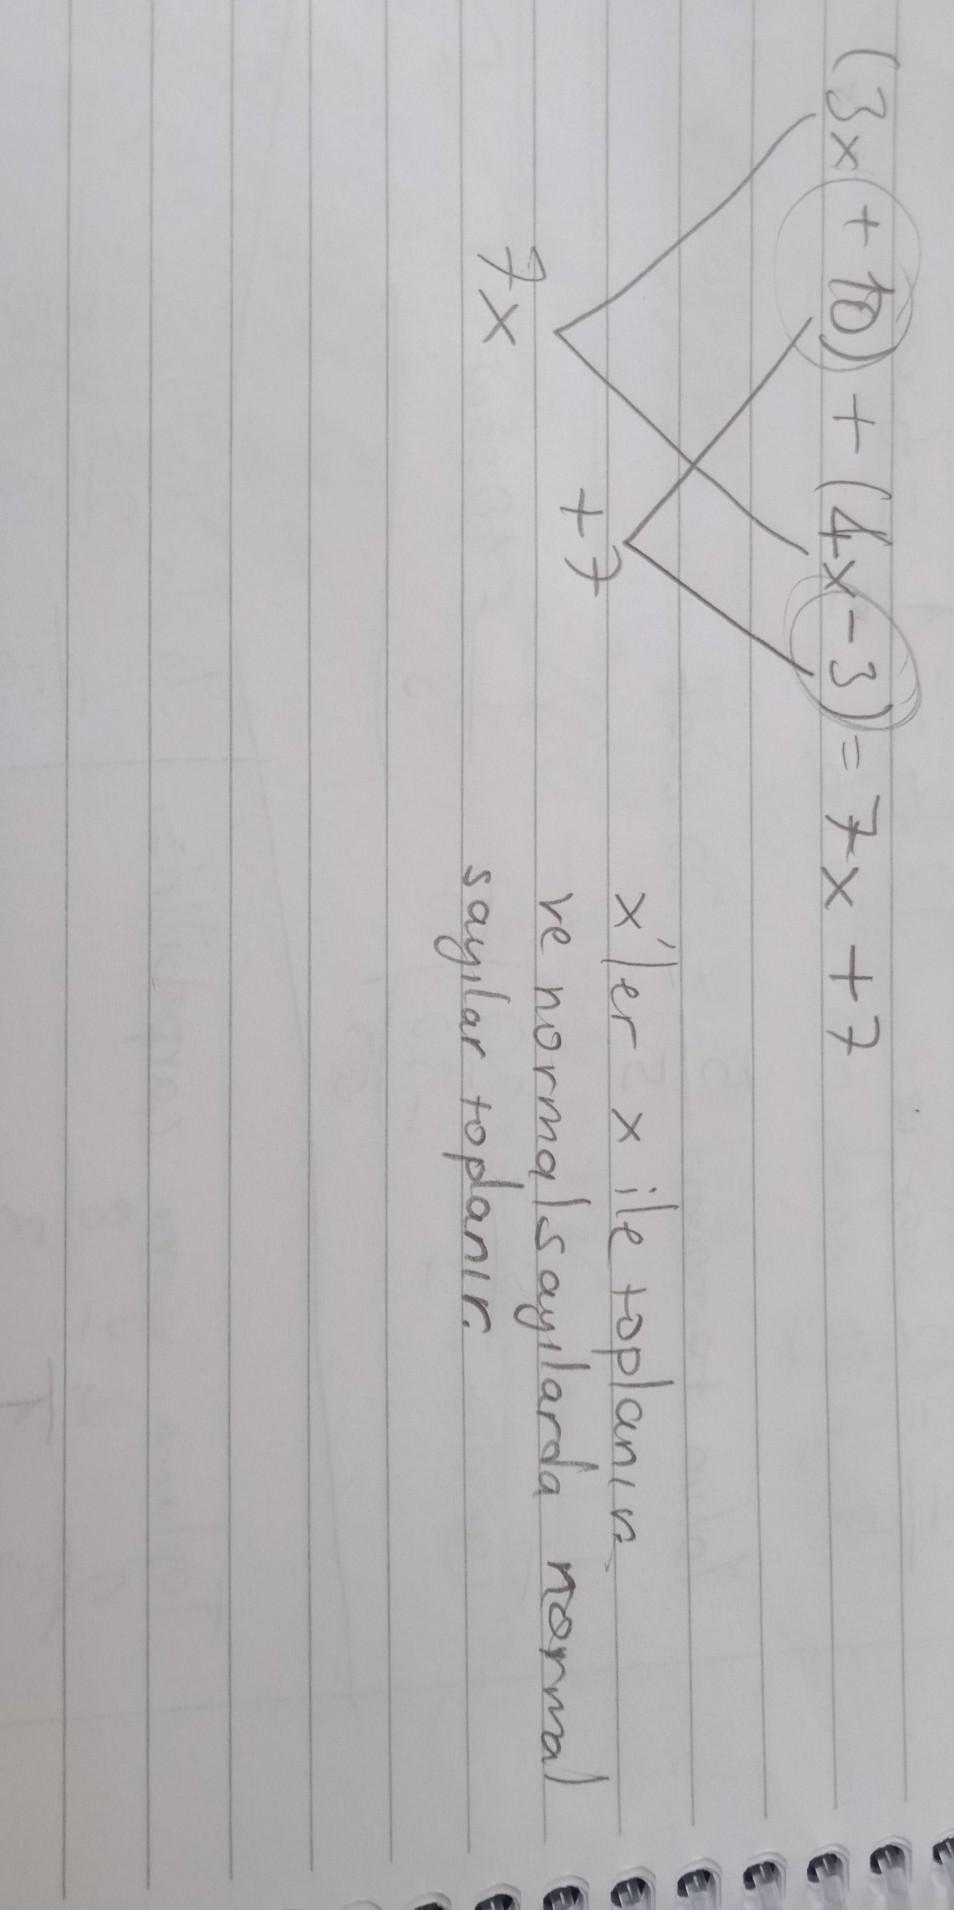 (3x + 10) + (4x - 3) = 7x + 7
+7
7x
x'ler x ile toplanır.
ve normal sayılarda normal
sayılar toplanır.